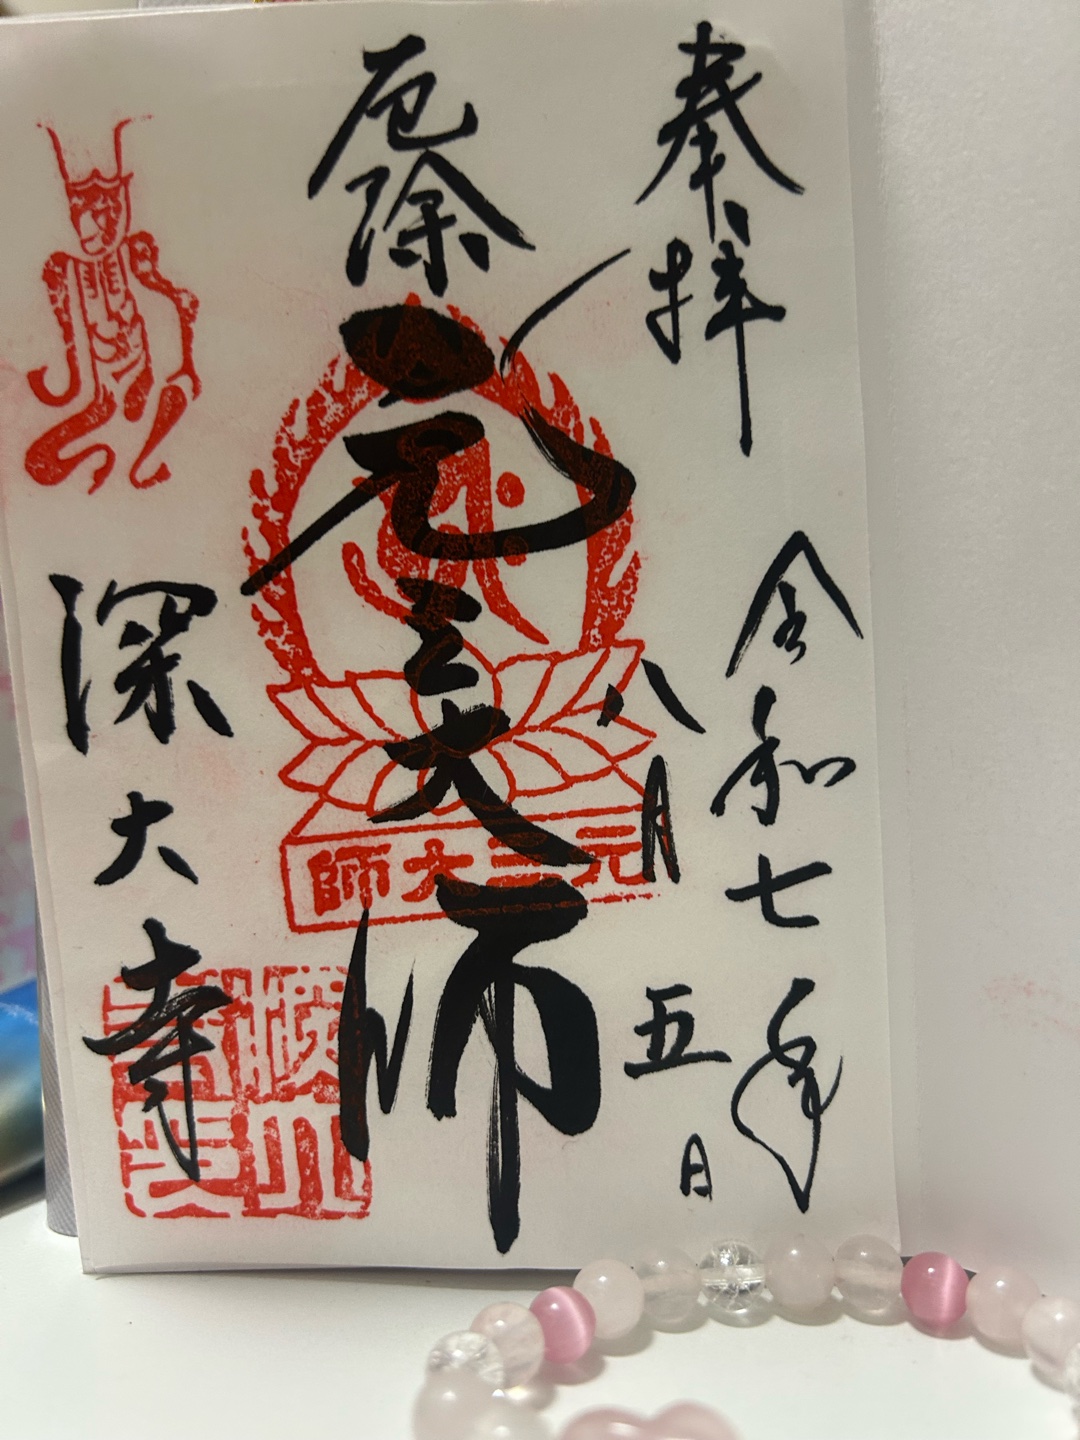 奉拝
令和七年
八月五日
厄除
元三大師
元三大師
深大寺